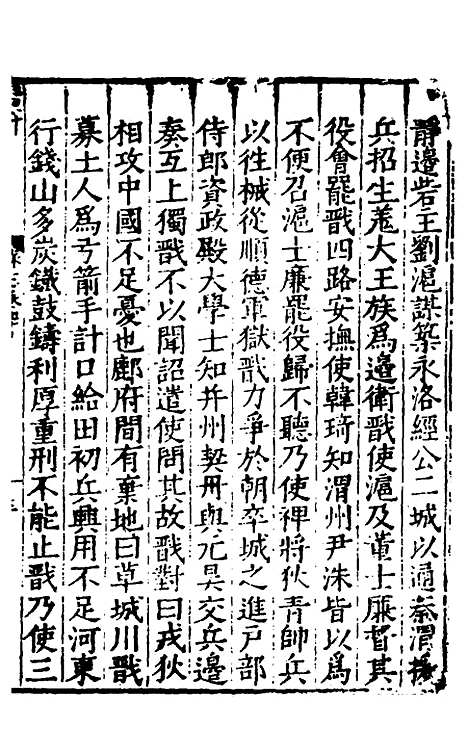 靜邊砦主劉滬謀築永洛經公二城以通秦渭援
兵招生羗大王族爲邊衛戩使滬及董士廉督其
役會罷戩四路安撫使韓琦知渭州尹洙皆以爲
不便召滬士廉罷役歸不聽乃使裨將狄青帥兵
以徃械從順德軍獄戩力爭於朝卒城之進戸部
侍郎資政殿大學士知并州契丹與元昊交兵邊
奏互上獨戩不以聞詔遣使問其故戩對曰戎狄
相攻中國不足憂也鄜府間有棄地曰草城川戩
募土人爲弓箭手計口給田初兵興用不足河東
行錢山多炭鐵鼓鑄利厚重刑不能止戩乃使三